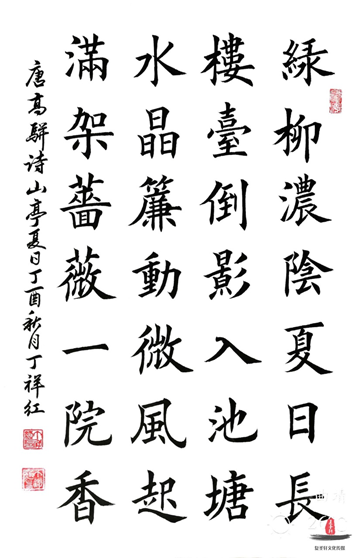 綠柳濃陰夏日長
樓臺倒影入池塘
水晶簾動微風起
滿架薔薇一院香
唐高駢诗山亭夏日丁酉秋月丁祥红